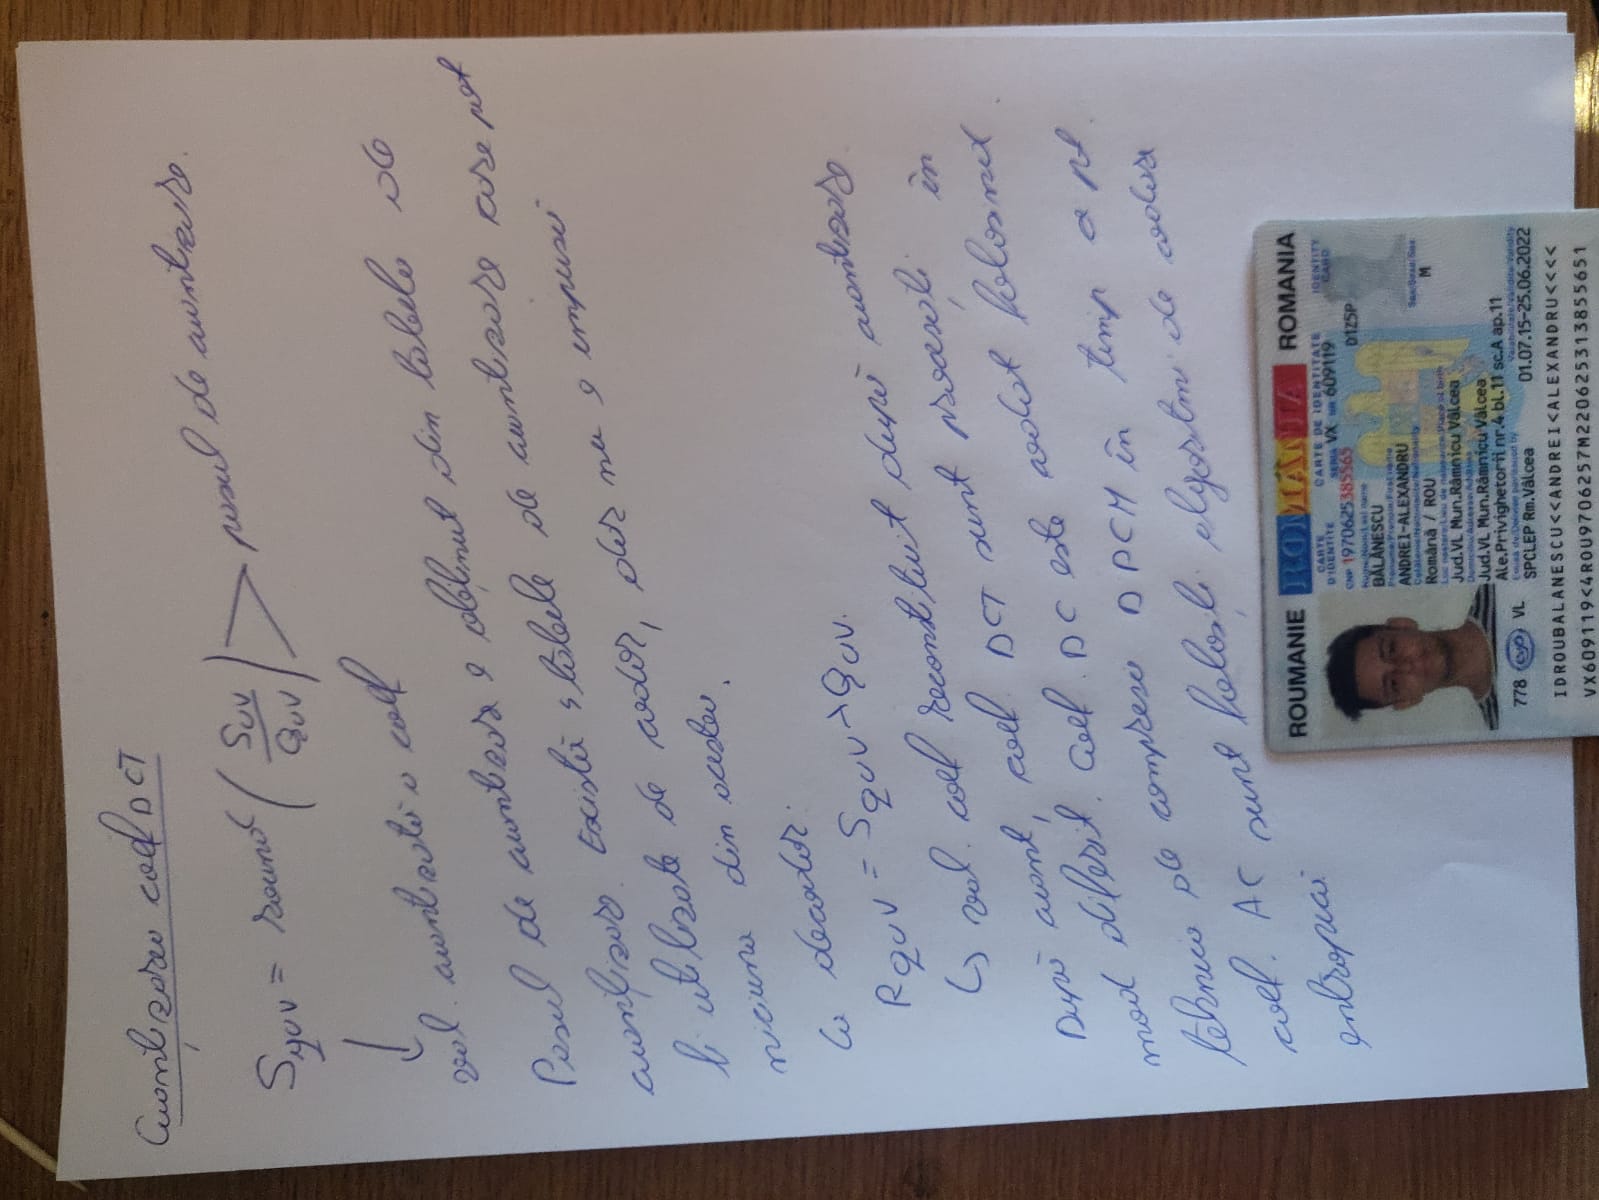 Cuantizarea coef DCT
Squv = round (Suv / Quv) > pasul de cuantizare.
↓
val. cuantizată a coef
Pasul de cuantizare e obținut din tabele de
cuantizare. Există 4 tabele de cuantizare care pot
fi utilizate de codor, dar nu e impusă
niciuna din acestea.
La decodor.
Rquv = Squv * Quv.
↳ val. coef reconstituit după cuantizare
După cuant, coef. DCT sunt procesați în
mod diferit. Coef. DC este codat folosind
tehnica de compresie DPCM în timp ce pt.
coef. AC sunt folosiți algoritmi de codare
entropică.
ROUMANIE ROMÂNIA ROMANIA
CARTE D'IDENTITE CARTE DE IDENTITATE IDENTITY CARD
SERIA VX NR 609119
CNP 1970625385565 D1Z5P
Nume/Nom/Last name
BĂLĂNESCU
Prenume/Prenom/First name
ANDREI-ALEXANDRU
Cetăţenie/Nationalite/Nationality Sex/Sexe/Sex
Română / ROU M
Loc nastere/Lieu de naissance/Place of birth
Jud.VL Mun.Râmnicu Vâlcea
Domiciliu/Adresse/Address
Jud.VL Mun.Râmnicu Vâlcea
Ale.Privighetorii nr.4 bl.11 sc.A ap.11
Emisă de/Delivree par/Issued by Valabilitate/Validite/Validity
778 VL SPCLEP Rm.Vâlcea 01.07.15-25.06.2022
IDROUBALANESCU<<ANDREI<ALEXANDRU<<<<
VX609119<4ROU9706257M220625313855651